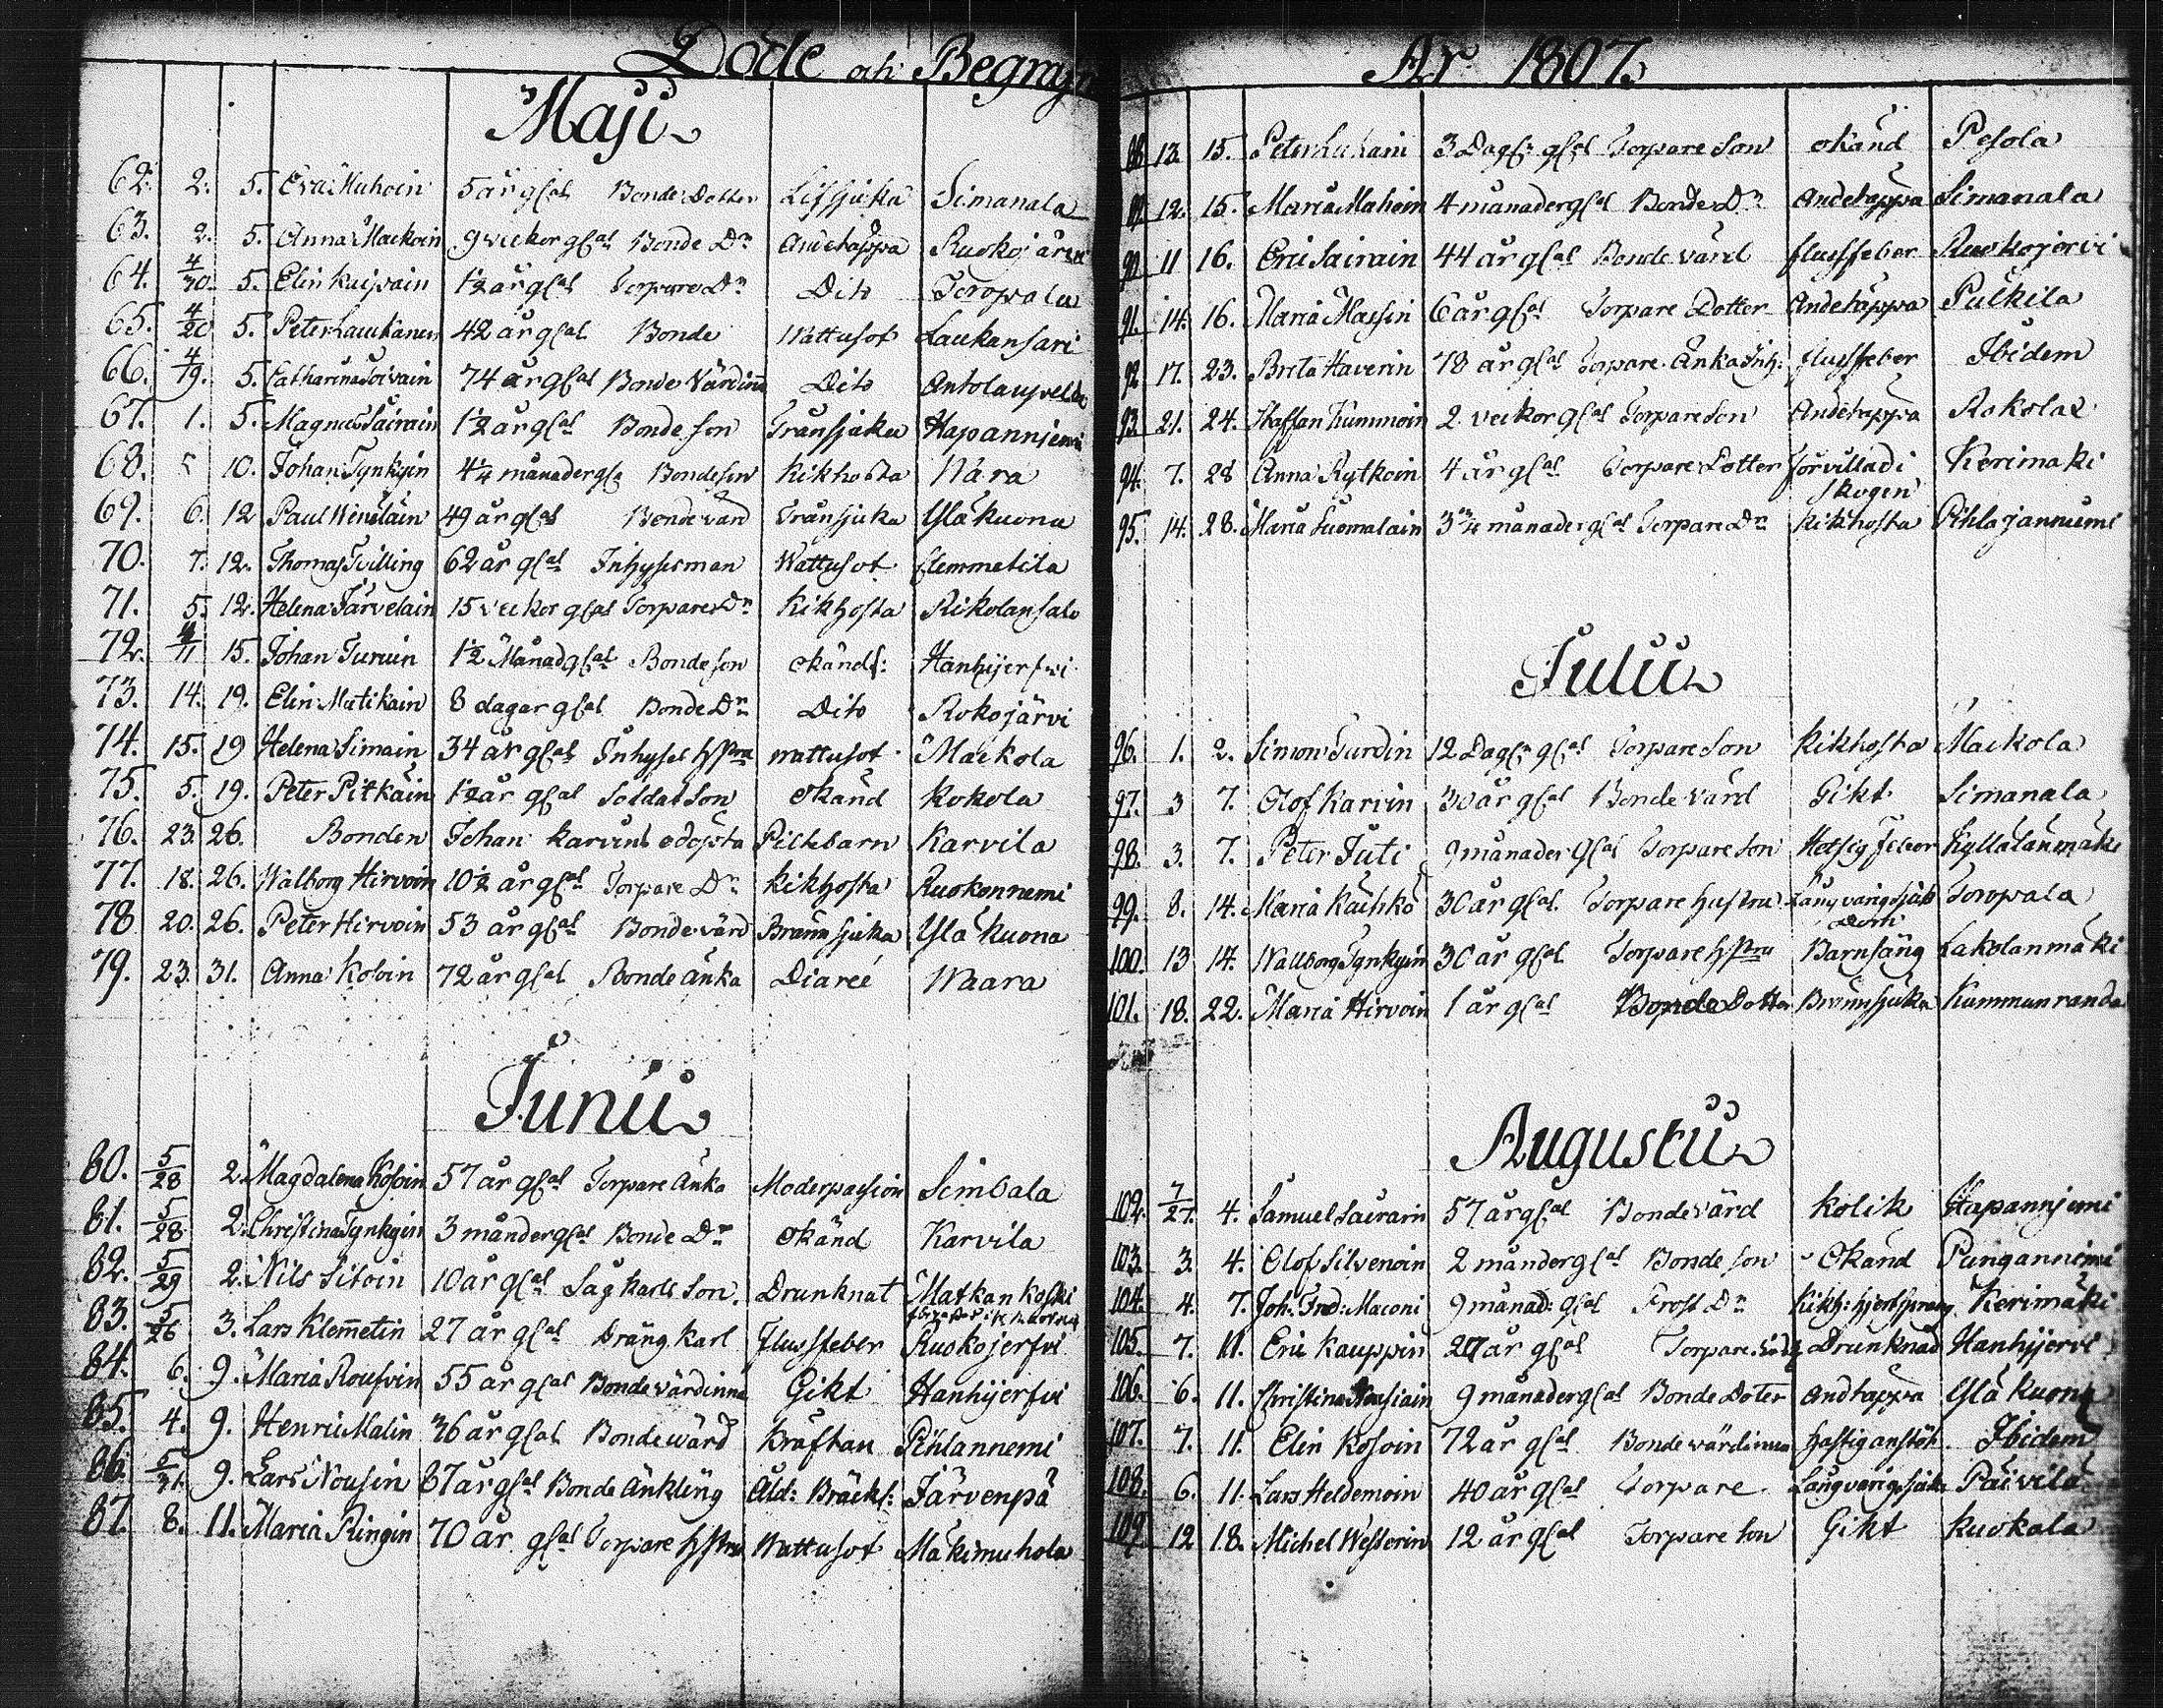 Döde och Begrafne
Maji
62. 2. 5. Eva Muhoin 5 år gl. Bonde Dotter Lifsjuka Simanala
63. 2. 5. Anna Maekoin 9 veckor gl. Bonde Dr Andetäppa Ruokojärvi
64. 4/30. 5. Elin Kuivain 1½ år gl. Torpare Dr Dito Toropala
65. 4/20 5. Peter Laukanen 42 år gl. Bonde Wattusot Laukansari
66. 4/19. 5. Catharina Toivain 74 år gl. Bonde Värdinna Dito
67. 1. 5. Magnus Sairain 1½ år gl. Bonde son Tränsjuka Hapanniemi
68. 5 10. Johan Tynkyin 4¼ månader gl. Bonde son Kikhosta Wara
69. 6. 12 Paul Wenäläin 49 år gl. Bonde värd Tränsjuka Ylä Kuona
70. 7. 12. Thomas Tvilling 62 år gl. Inhysesman Wattusot Clemmetila
71. 5. 12. Helena Järveläin 15 veckor gl. Torpare Dr Kikhosta Rikolansalo
72. 4/11 15. Johan Turuin 1½ Månad gl. Bonde son okänd s: Hanhijerfwi
73. 14. 19. Elin Matikain 8 dagar gl. Bonde Dr Dito Rokojärvi
74. 15. 19 Helena Simain 34 år gl. Inhyses hstru wattusot Maekola
75. 5. 19. Peter Pitkäin 1½ år gl. Soldat son okänd Kokola
76. 23. 26. Bonden Johan Karvins odöpta Pilltbarn Karvila
77. 18. 26. Walborg Hirvoin 10½ år gl. Torpare Dr Kikhosta Ruokonnemi
78 20. 26. Peter Hirvoin 53 år gl. Bonde värd Brännsjuka Ylä Kuona
79. 23. 31. Anna Kosoin 72 år gl. Bonde änka Diareé Waara
Junii
80. 5/28 2. Magdalena Kosoin 57 år gl. Torpare Änka Moderpassion
81. 5/28 2. Christina Tynkyin 3 månder gl. Bonde Dr okänd Karvila
82. 5/29 2. Nils Siloin 10 år gl. Sågkarls son. Drunknat Matkan koski
83. 5/26 3. Lars Klemetin 27 år gl. Dräng Karl flussfeber Ruokojerfvi
84. 6. 9. Maria Rousvin 55 år gl. Bonde värdinna Gikt Hanhijerfvi
85. 4. 9. Henric Malin 36 år gl. Bonde wärd Kräftan Pihlannemi
86. 5/31 9. Lars Nousin 87 år gl. Bonde Änkling Åld: Bräckl: Järvenpä
87. 8. 11. Maria Ringin 70 år gl. Torpare hstru Wattusot Mäkimuhola
År 1807.
88. 12. 15. Peter Luhani 3 Dag: gl. Torpare son okänd Pesola
89. 12. 15. Maria Mahoin 4 månader gl. Bonde Dr Andetäppa Simanala
90. 11 16. Eric Sairain 44 år gl. Bonde värd flussfeber Ruokojervi
91. 14. 16. Maria Massin 6 år gl. Torpare Dotter Andetäppa Pulkila
92. 17. 23. Brita Haverin 78 år gl. Torpare Änka Inh: flussfeber Ibidem
93. 21. 24. Staffan Kummoin 2 veckor gl. Torpare son Andetäppa Rokola
94. 7. 28 Anna Rytkoin 4 år gl. Torpare Dotter förvillad i skogen Kerimäki
95. 14. 28. Maria Suomalain 3¾ månader gl. Torpare Dr Kikhosta Pihlajanniemi
Julii
96. 1. 2. Simon Turdin 12 Dag: gl. Torpare son Kikhosta Maekola
97. 3 7. Olof Karvin 30 år gl. Bonde värd Gikt Simanala
98. 3. 7. Peter Juti 9 månader gl. Torpare son Hetsig feber Kylläläänmäki
99. 8. 14. Maria Käihkö 30 år gl. Torpare hustru Långvarig sjukdom Toropala
100. 13 14. Wallborg Tynkyin 30 år gl. Torpare hstru Barnsäng Lakolanmäki
101. 18. 22. Maria Hirvoin 1 år gl. Bonde Dotter Brännsjuka Kummunranda
Augustii
102. 7/27. 4. Samuel Sairain 57 år gl. Bonde värd Kolik Hapanniemi
103. 3. 4. Olof Silvenoin 2 månder gl. Bonde son Okänd Pungannemi
104. 4. 7. Joh: Fred: Maconi 9 månad: gl. Prost Dr Kikh: hjertsprång Kerimäki
105. 7. 11. Eric Kauppin 27 år gl. Torpare Drunknad Hanhijervi
106. 6. 11. Christina Nousiain 9 månader gl. Bonde Doter andtäppa Ylä Kuona
107. 7. 11. Elin Kosoin 72 år gl. Bonde värdinna hastig anstöt. Ibidem
108. 6. 11. Lars Heldemoin 40 år gl. Torpare Långvarig sjukd Päivilä
109. 12 18. Michel Westerin 12 år gl. Torpare son Gikt Kuokala